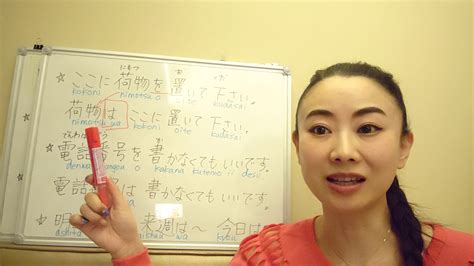 ★ここに荷物を置いて下さい。
kokoni nimotsu o oite kudasai
荷物はここに置いて下さい。
nimotsu wa kokoni oite kudasai
でんわばんごう
★電話番号を書かなくてもいいです。
denwa o kakana kutemo ii desu
電話 は書かなくてもいいです。
明 来週は〜 今日は
ashita wa kyou